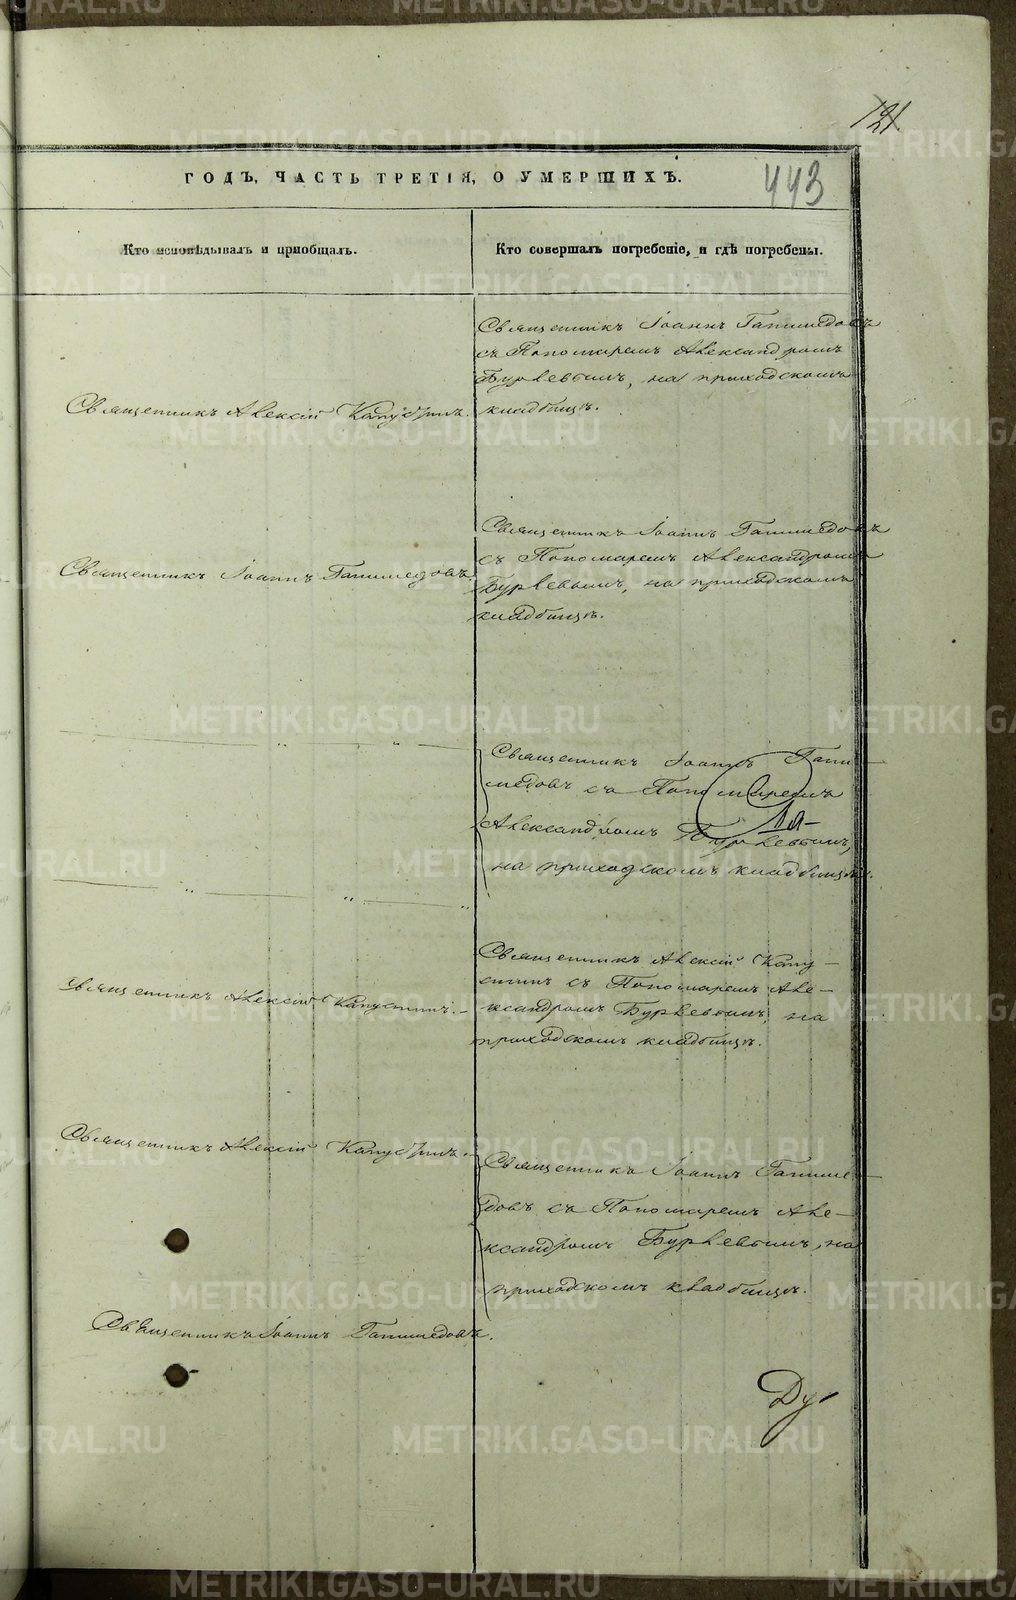 121.
443
ГОДЪ, ЧАСТЬ ТРЕТІЯ, О УМЕРШИХЪ.
Кто исповѣдывалъ и пріобщалъ.
Кто совершалъ погребеніе, и гдѣ погребены.
Священникъ Алексій Капустинъ.
Священникъ Іоаннъ Ганимедовъ
съ Пономаремъ Александромъ
Бурлевымъ, на приходскомъ
кладбищѣ.
Священникъ Іоаннъ Ганимедовъ.
Священникъ Іоаннъ Ганимедовъ
съ Пономаремъ Александромъ
Бурлевымъ, на приходскомъ
кладбищѣ.
Священникъ Іоаннъ Гани-
медовъ съ Пономаремъ
Александромъ Бурлевымъ,
на приходскомъ кладбищѣ.
Священникъ Алексій Капустинъ.
Священникъ Алексій Капу-
стинъ съ Пономаремъ Але-
ксандромъ Бурлевымъ, на
приходскомъ кладбищѣ.
Священникъ Алексій Капустинъ.
Священникъ Іоаннъ Ганиме-
довъ съ Пономаремъ Але-
ксандромъ Бурлевымъ, на
приходскомъ кладбищѣ.
Священникъ Іоаннъ Ганимедовъ.
Ду
METRIKI.GASO-URAL.RU